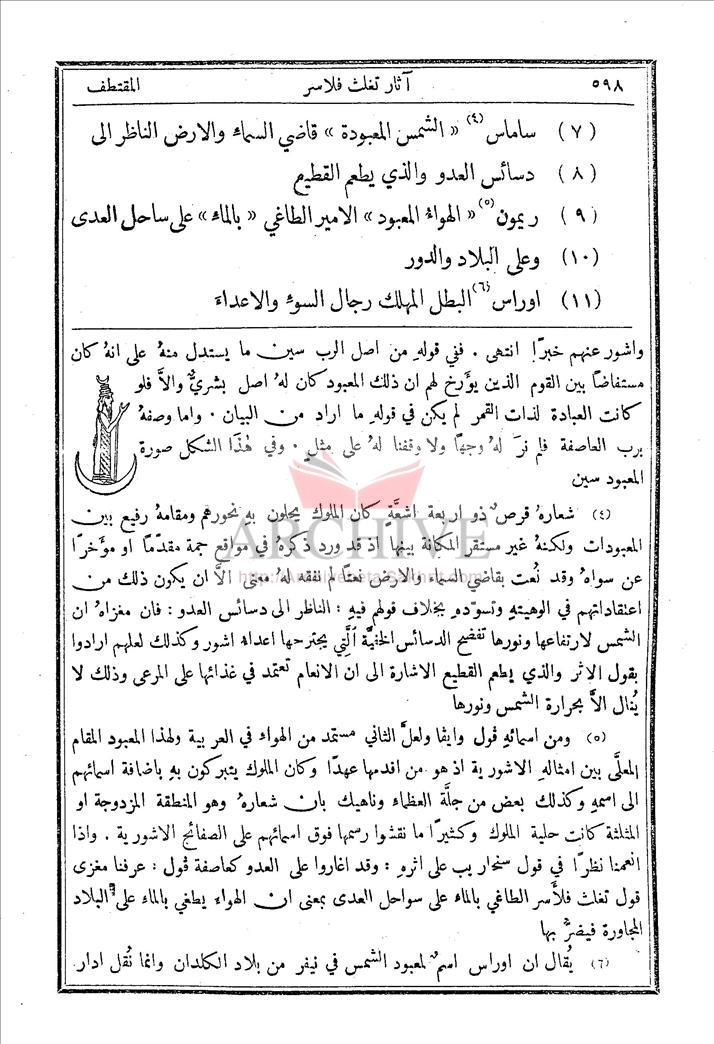 ٥٩٨ آثار تغلث فلاسر المقتطف
(٧) ساماس(٤) « الشمس المعبودة » قاضي السماء والارض الناظر الى
(٨) دسائس العدو والذي يطعم القطيع
(٩) ريمون(٥) « الهواء المعبود » الامير الطاغي « بالماء » على ساحل العدى
(١٠) وعلى البلاد والدور
(١١) اوراس(٦) البطل المهلك رجال السوء والاعداء
واشور عنهم خبرًا انتهى . ففي قوله من اصل الرب سين ما يستدل منهُ على انهُ كان
مستفاضًا بين القوم الذين يؤَرخ لهم ان ذلك المعبود كان لهُ اصل بشريٌّ والاَّ فلو
كانت العبادة لذات القمر لم يكن في قوله ما اراد من البيان . واما وصفهُ
برب العاصفة فلم نرَ لهُ وجهًا ولا وقفنا لهُ على مثلٍ . وفي هٰذا الشكل صورة
المعبود سين
(٤) شعارهُ قرص ذو اربعة اشعَّةٍ كان الملوك يحلون به نحورهم ومقامهُ رفيع بين
المعبودات ولكنهُ غير مستقر المكانة بينها اذ قد ورد ذكرهُ في مواقع جمة مقدّمًا او مؤَخرًا
عن سواهُ وقد نُعت بقاضي السماء والارض نعتًا لم نفقه لهُ معنى الاَّ ان يكون ذلك من
اعتقاداتهم في الوهيته وتسوّده بخلاف قولهم فيه : الناظر الى دسائس العدو : فان مغزاه ان
الشمس لارتفاعها ونورها تفضح الدسائس الخفيَّة اَلَّتي يجترحها اعداء اشور وكذلك لعلهم ارادوا
بقول الاثر والذي يطعم القطيع الاشارة الى ان الانعام تعتمد في غذائها على المرعى وذلك لا
يُنال الاَّ بحرارة الشمس ونورها
(٥) ومن اسمائه ڤول وايڤا ولعلَّ الثاني مستمد من الهواء في العربية ولهذا المعبود المقام
المعلَّى بين امثاله الاشورية اذ هو من اقدمها عهدًا وكان الملوك يتبركون به باضافة اسمائهم
الى اسمه وكذلك بعض من جلَّة العظماء وناهيك بان شعارهُ وهو المنطقة المزدوجة او
المثلثة كانت حلية الملوك وكثيرًا ما نقشوا رسمها فوق اسمائهم على الصفائح الاشورية . واذا
انعمنا نظرًا في قول سنحاريب على اثره : وقد اغاروا على العدو كعاصفة ڤول : عرفنا مغزى
قول تغلث فلاَسر الطاغي بالماء على سواحل العدى بمعنى ان الهواء يطغي بالماء على البلاد
المجاورة فيضرُّ بها
(٦) يُقال ان اوراس اسم لمعبود الشمس في نيفر من بلاد الكلدان وانما نُقل ادار
ARCHIVE